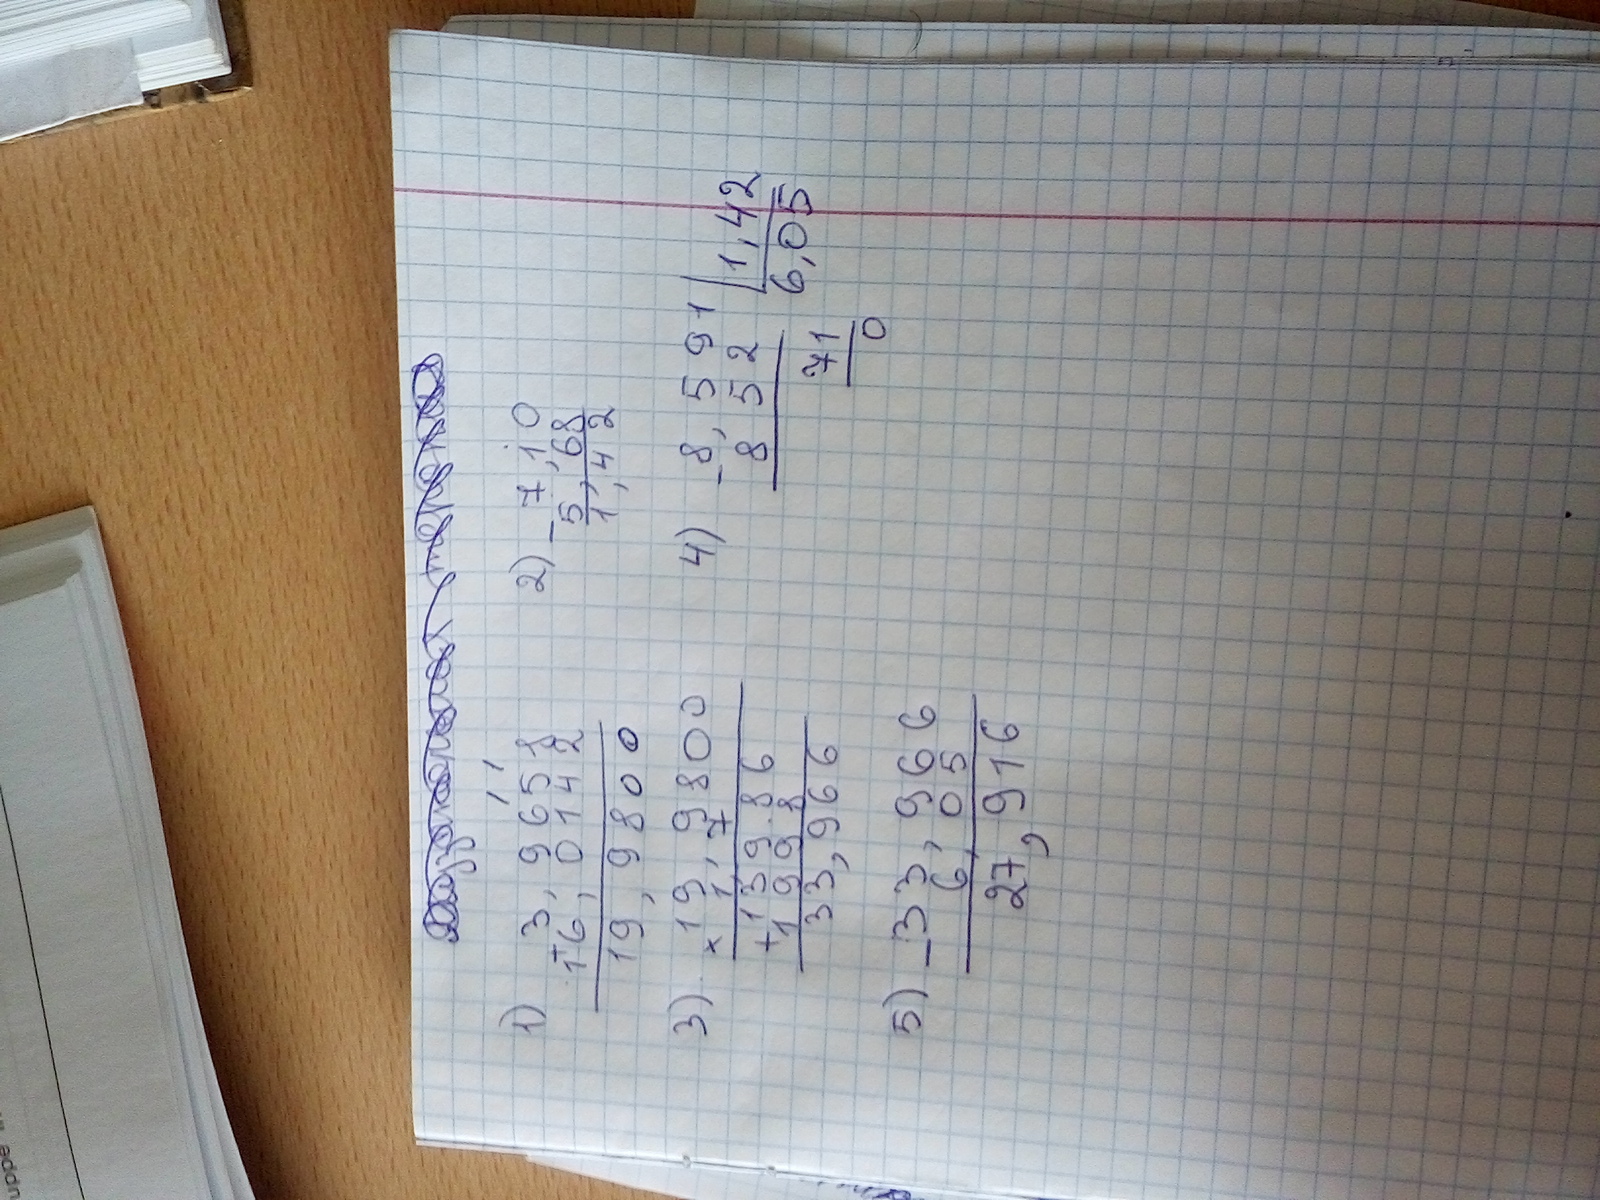 1) 3,9658
+
16,0142
19,9800
2) - 7,10
5,68
1,42
3) × 19,9800
1,7
+ 139 86
199 8
33,966
4) - 8,591 | 1,42
8 52 6,05
71
0
5) - 33,966
6,05
27,916